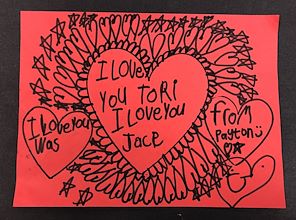 I LOVE
YOU TORI
I LOVE YOU
JACE
I LOVE YOU
Was
From
Payton